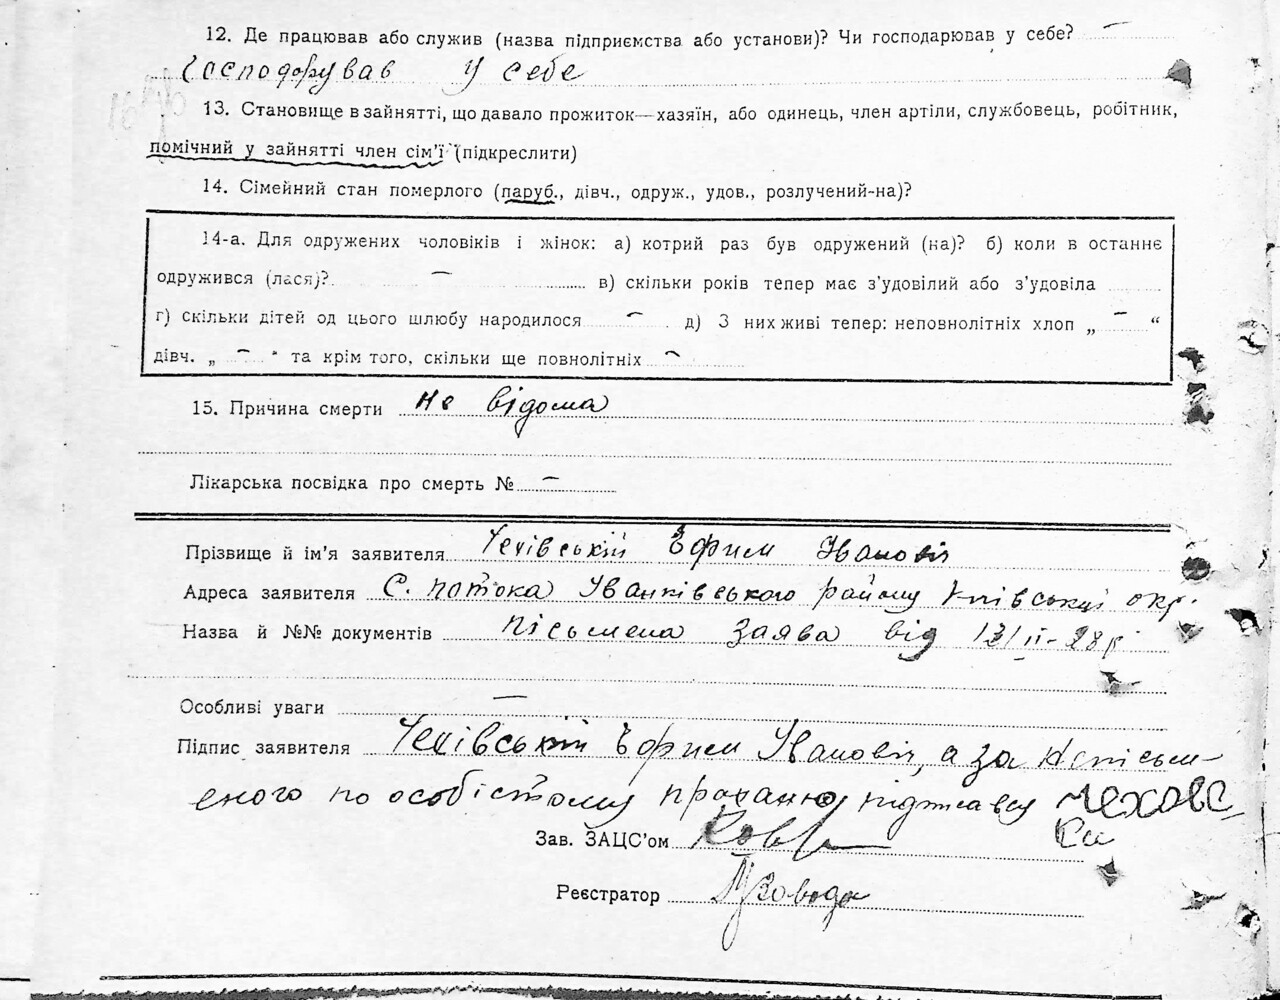 12. Де працював або служив (назва підприємства або установи)? Чи господарював у себе? —
Господорував у себе
13. Становище в зайнятті, що давало прожиток—хазяїн, або одинець, член артіли, службовець, робітник,
помічний у зайнятті член сім'ї (підкреслити)
14. Сімейний стан померлого (паруб., дівч., одруж., удов., розлучений-на)?
14-а. Для одружених чоловіків і жінок: а) котрий раз був одружений (на)? б) коли в останнє
одружився (лася)? — в) скільки років тепер має з'удовілий або з'удовіла
г) скільки дітей од цього шлюбу народилося — д) З них живі тепер: неповнолітніх хлоп „ — “
дівч. „ — “ та крім того, скільки ще повнолітніх —
15. Причина смерти не відома
Лікарська посвідка про смерть № —
Прізвище й ім'я заявителя Чехівський Єфрим Іванович
Адреса заявителя С. потока Іванківського району Київської окр.
Назва й №№ документів пісьмена заява від 13/II-28р
Особливі уваги —
Підпис заявителя Чехівський Єфрим Іванович, а за непісьм-
еного по особістому проханню підписавсу Чеховс
кй
Зав. ЗАЦС'ом
Реєстратор